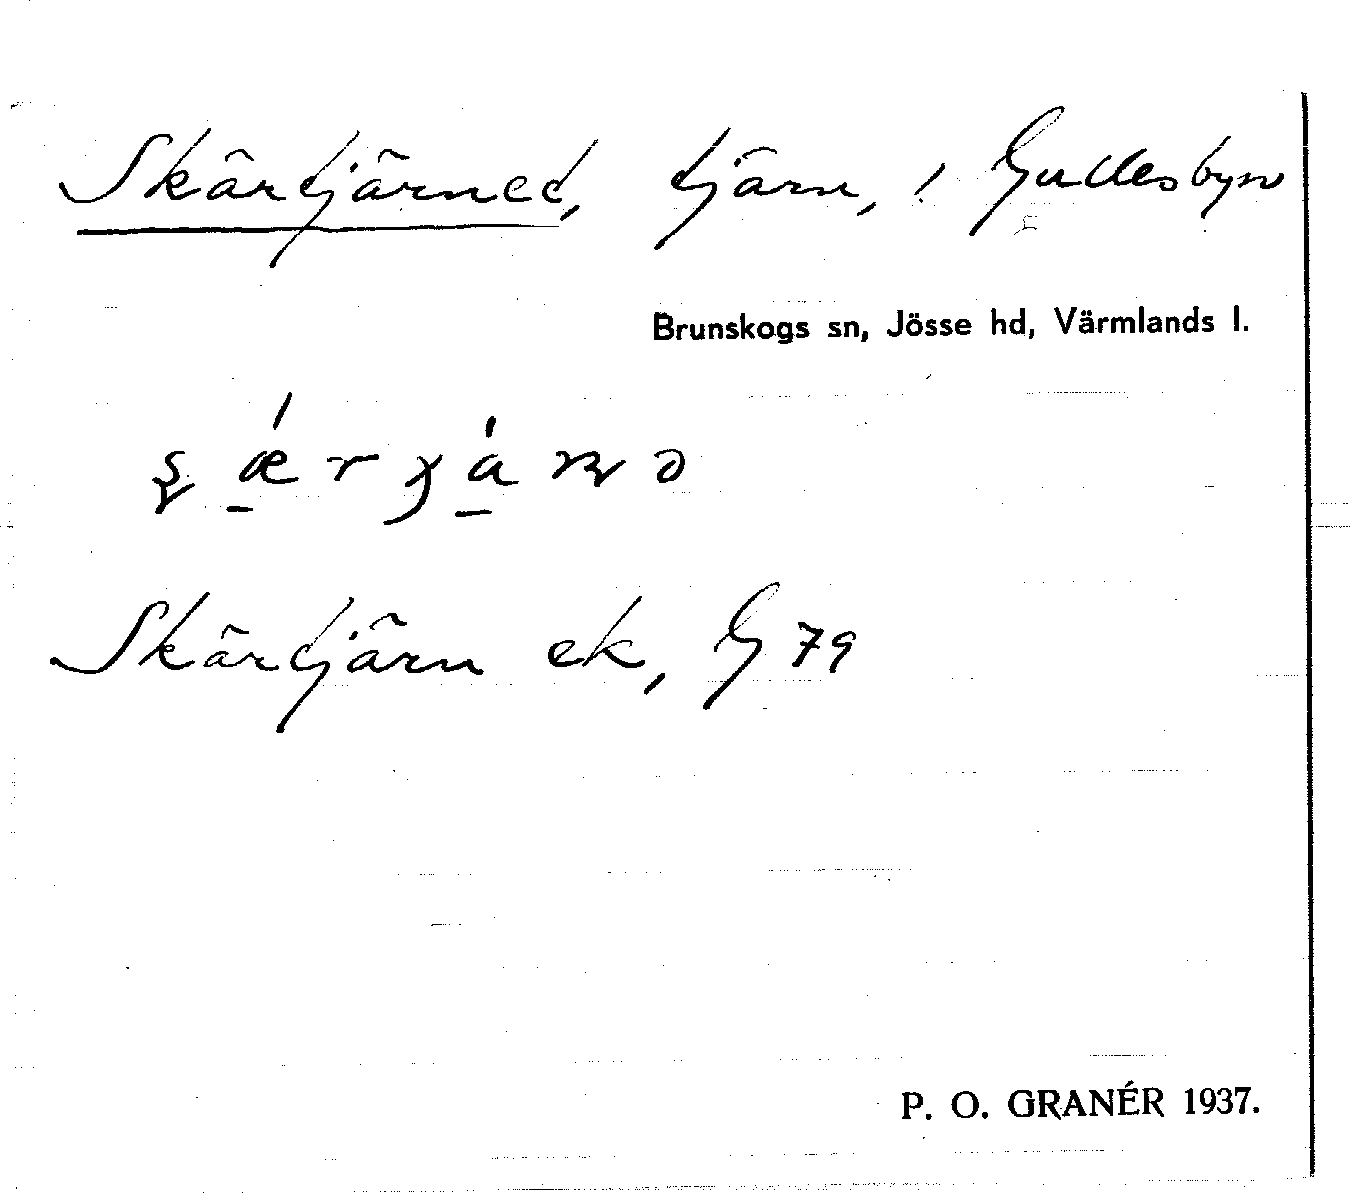 Skärtjärnet, tjärn, i Gullesbyn
Brunskogs sn, Jösse hd, Värmlands l.
Skärtjärn ek, G 79
P. O. GRANÉR 1937.